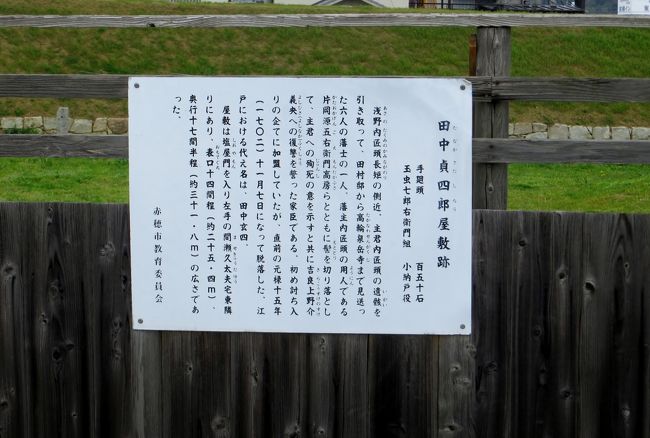 田中貞四郎屋敷跡
手廻頭　百五十石
玉虫七郎右衛門組　小納戸役
浅野内匠頭長矩の側近。主君内匠頭の遺骸を
引き取って、田村邸から高輪泉岳寺まで見送っ
た六人の藩士の一人。藩主内匠頭の用人である
片岡源五右衛門高房らとともに髻を切り落とし
て、主君への殉死の意を示すと共に吉良上野介
義央への復讐を誓った家臣である。初め討ち入
りの企てに加盟していたが、直前の元禄十五年
(一七〇二)十一月七日になって脱落した。江
戸における代え名は、田中玄四。
屋敷は塩屋門を入り左手の間瀬久太夫宅東隣
りにあり、表口十四間程(約二十五・四m)、
奥行十七間半程(約三十一・八m)の広さであ
った。
赤穂市教育委員会